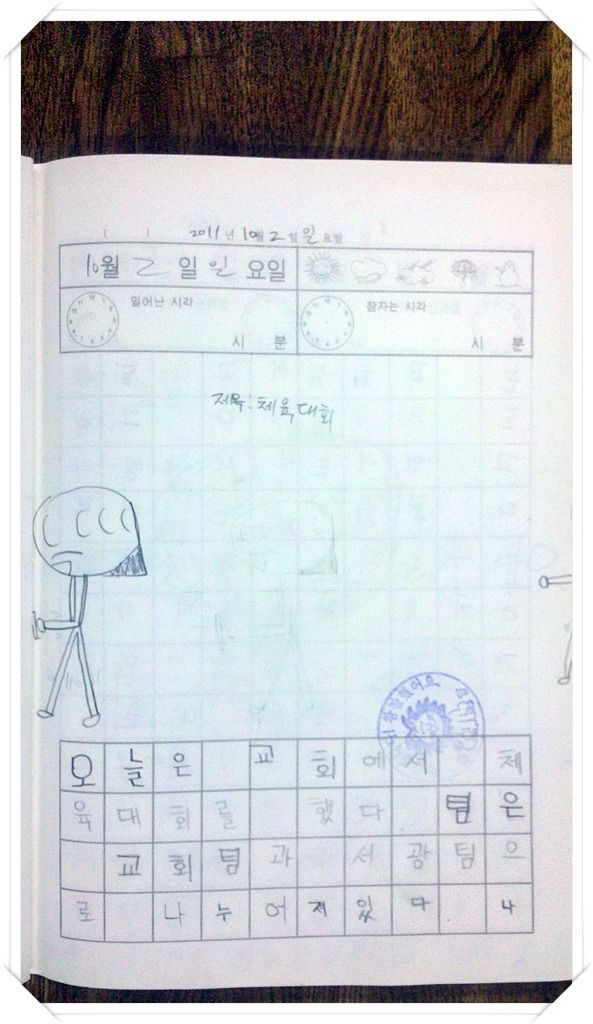 2011년 10월 2일 일요일
10월 2일 일요일
일어난 시각
시 분
잠자는 시각
시 분
제목: 체육대회
참 잘했어요
오늘은 교회에서 체
육대회를 했다 팀은
교회팀과 서광팀으
로 나누어져있다 나